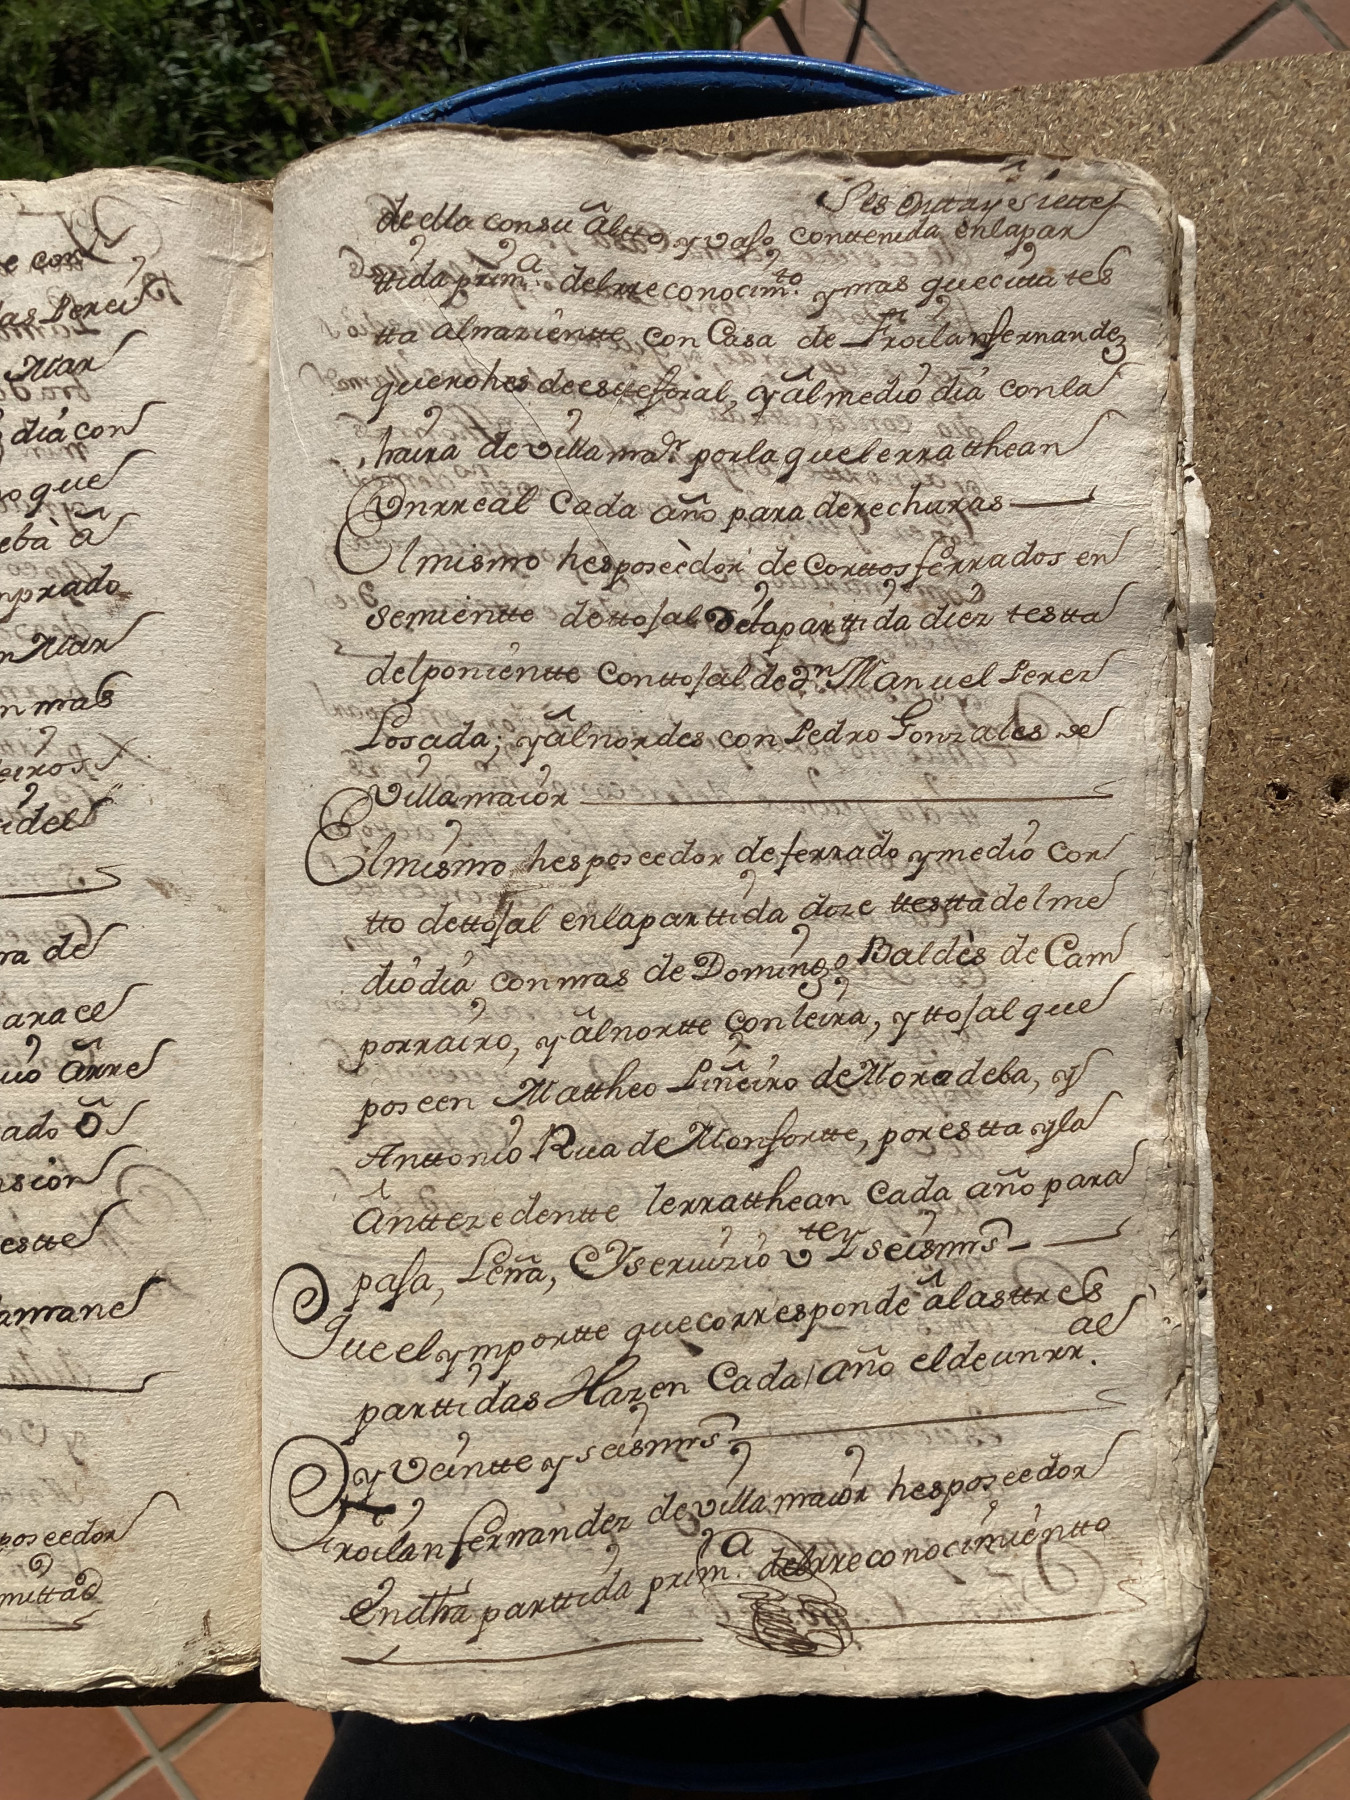 Sesentta y siette
de ella con su âltto, y vaso contenida en la par
ttida prim.ª del rreconocim.to y mas que citta tes
tta al naziente con Casa de Froilan fernandez
que no hes de este foral, y âl medio dia con la
haira de villa m.or por la que le rratthean
Un rreal Cada año para derechuras
El mismo hes poseèdor de Corttos ferrados en
semientte de ttosal de la parttida diez testta
del ponientte con ttosal de D.n Manuel Perez
Losada; y âl nordes con Pedro Gonzales de
villamaior
El mismo hes poseedor de ferrado y medio Cor
tto de ttosal en la parttida doze ttestta del me
dio dia con mas de Domingo Baldès de Cam
porrairo, y âl nortte con leira, y ttosal que
poseen Mattheo Piñeiro de Moradeba, y
Anttonio Rua de Monfortte, por estta y la
Ânttezedentte le rratthean Cada año para
pasa, Leña, y servizio Vte y seis mrs
Que el ymportte que corresponde âlas ttres
parttidas Hazen Cada año el de un rr.al
y Veintte y seis mrs
Froilan fernandez de villamaior hes poseedor
en dha parttida prim.ª del rreconocimientto
e con
las Perei
Mar
dia con
o que
eba â
prado
n Mar
n mas
eiros
idel
ra de
ara ce
uo ârre
ado ô
sion
estte
aman
poseedor
mittad